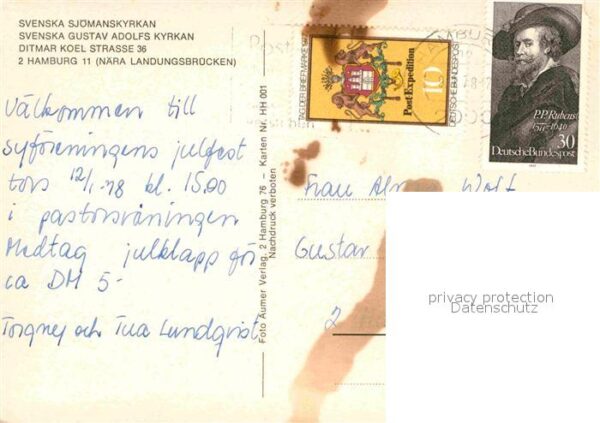 SVENSKA SJÖMANSKYRKAN
SVENSKA GUSTAV ADOLFS KYRKAN
DITMAR KOEL STRASSE 36
2 HAMBURG 11 (NÄRA LANDUNGSBRÜCKEN)
Välkommen till
syföreningens julfest
tors 12/1-78 kl. 15.00
i pastorsvåningen
Medtag julklapp för
ca DM 5-
Torgney och Tua Lundqvist
Foto Aumer Verlag, 2 Hamburg 76 – Karten Nr. HH 001
Nachdruck verboten
TAG DER BRIEFMARKE 1977
Post-Expedition
10
DEUTSCHE BUNDESPOST
P.P. Rubens
1577-1640
30
Deutsche Bundespost
Frau
Gustav
2
privacy protection
Datenschutz